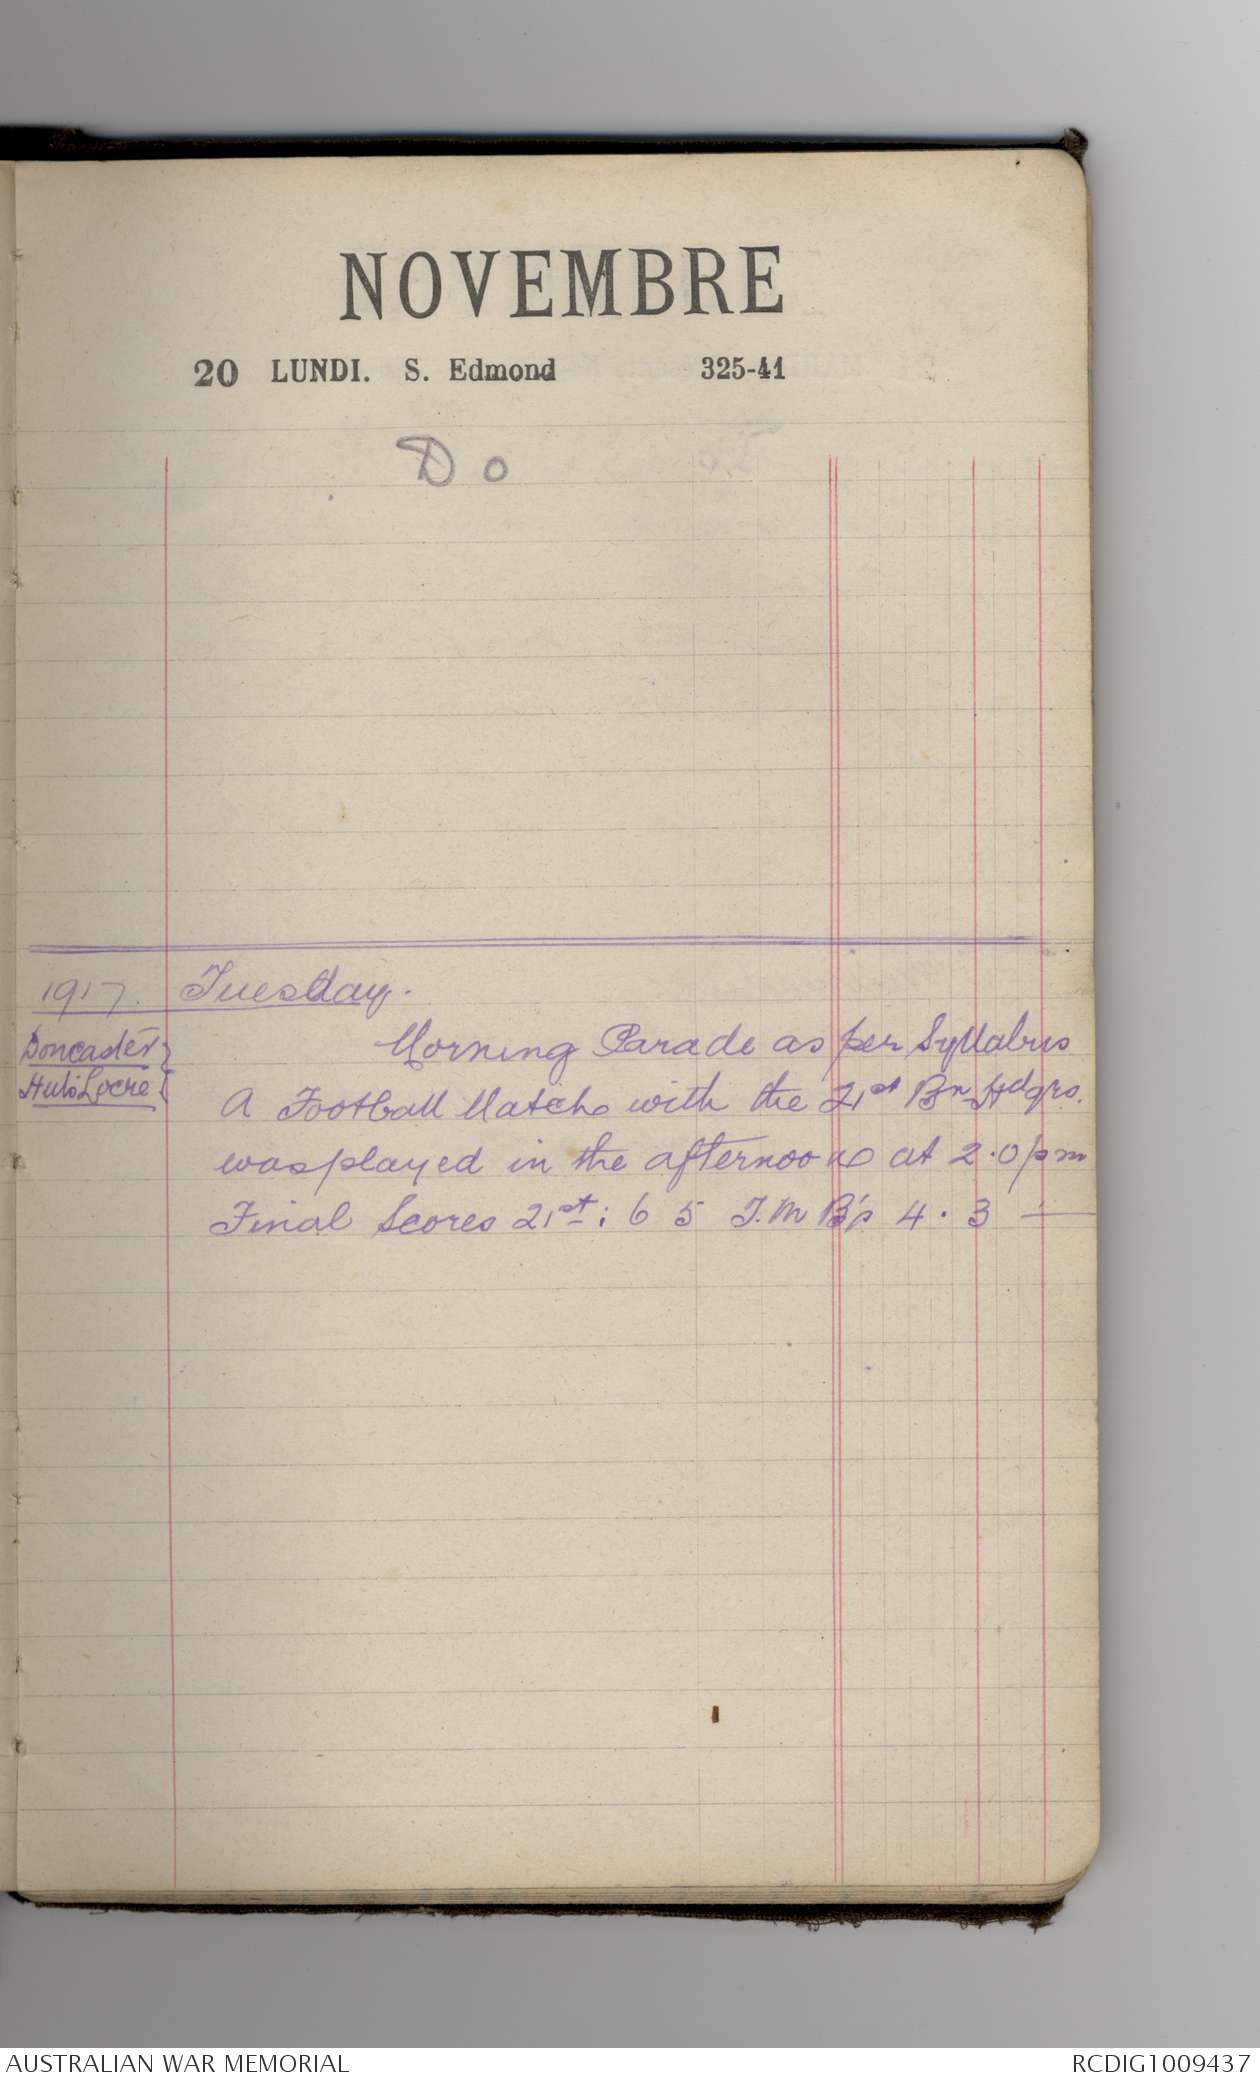 NOVEMBRE
20 LUNDI. S. Edmond 325-41
Do
1917. Tuesday.
Doncaster
Huts Locre
Morning Parade as per Syllabus
A Football Match with the 21st Bn Hdqrs.
was played in the afternoon at 2.0 pm
Final Scores 21st: 6 5 T.M B's 4.3 —
AUSTRALIAN WAR MEMORIAL RCDIG1009437